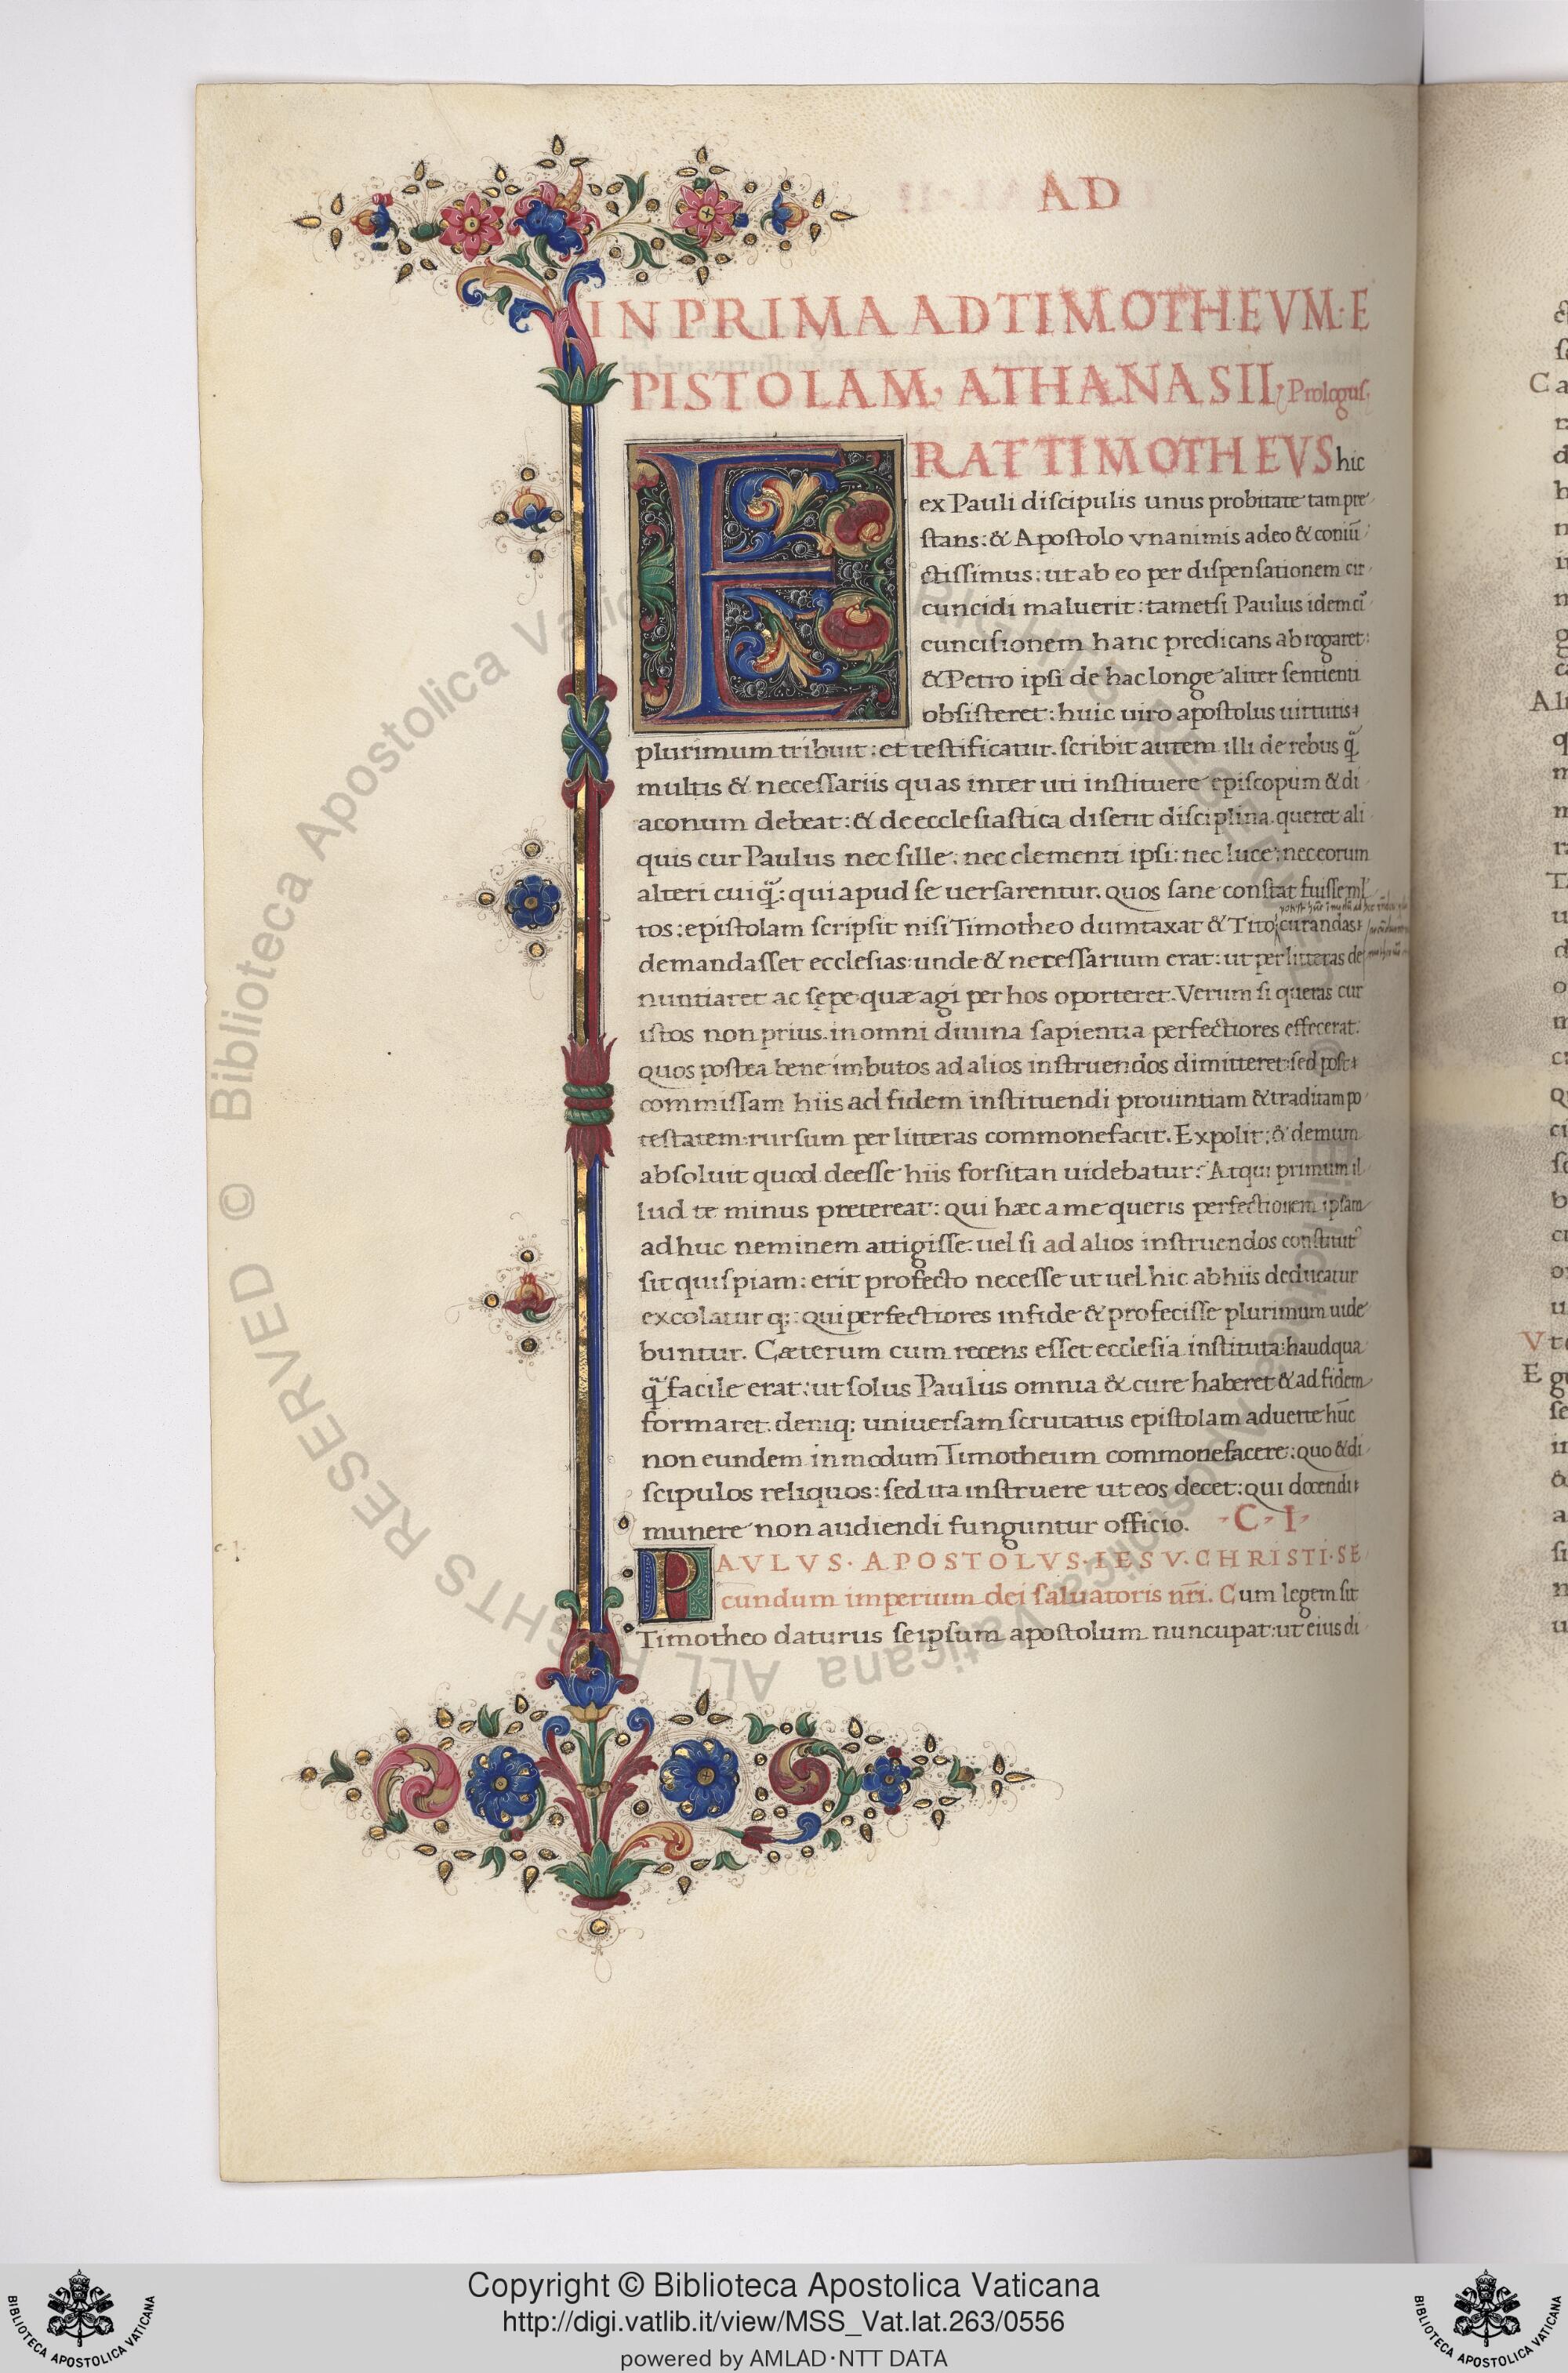 AD
IN PRIMA AD TIMOTHEVM·E
PISTOLAM, ATHANASII, Prologus.
ERAT TIMOTHEVS hic
ex Pauli discipulis unus probitate tam pre
stans: & Apostolo vnanimis adeo & coniū
ctissimus: ut ab eo per dispensationem cir
cuncidi maluerit: tametsi Paulus idem cir
cuncisionem hanc predicans abrogaret:
& Petro ipsi de hac longe aliter sentienti
obsisteret: huic uiro apostolus uirtutis
plurimum tribuit: et testificatur. scribit autem illi de rebus q̄
multis & necessariis quas inter uti instituere episcopum & di
aconum debeat: & de ecclesiastica diserit disciplina. queret ali
quis cur Paulus nec sille: nec clementi ipsi: nec luce: nec eorum
alteri cuiq̄: qui apud se uersarentur. quos sane constat fuisse ml̄
tos: epistolam scripsit nisi Timotheo dumtaxat & Tito curandas
demandasset ecclesias: unde & necessarium erat: ut per litteras de
nuntiaret ac sępe quæ agi per hos oporteret. Verum si queras cur
istos non prius in omni diuina sapientia perfectiores effecerat:
quos postea bene imbutos ad alios instruendos dimitteret: sed post
commissam hiis ad fidem instituendi prouintiam & traditam po
testatem: rursum per litteras commonefacit. Expolit: & demum
absoluit quod deesse hiis forsitan uidebatur: Atqui primum il
lud te minus pretereat: qui hæc a me queris perfectionem ipsam
adhuc neminem attigisse. uel si ad alios instruendos constitut᾽
sit quispiam: erit profecto necesse ut uel hic ab hiis deducatur
excolaturq;: qui perfectiores in fide & profecisse plurimum uide
buntur. Cæterum cum recens esset ecclesia instituta: haudqua
q̄ facile erat: ut solus Paulus omnia & cure haberet & ad fidem
formaret. deniq; uniuersam scrutatus epistolam aduerte hūc
non eundem in modum Timotheum commonefacere: quo & di
scipulos reliquos: sed ita instruere ut eos decet: qui docendi
munere non audiendi funguntur officio. C·I·
PAVLVS·APOSTOLVS·IESV·CHRISTI·SE
cundum imperium dei saluatoris nr̄i. Cum legem sit
Timotheo daturus se ipsum apostolum nuncupat: ut eius di
© Biblioteca Apostolica Vaticana ALL RIGHTS RESERVED
Copyright © Biblioteca Apostolica Vaticana
http://digi.vatlib.it/view/MSS_Vat.lat.263/0556
powered by AMLAD·NTT DATA
BIBLIOTECA APOSTOLICA VATICANA
BIBLIOTECA APOSTOLICA VATICANA